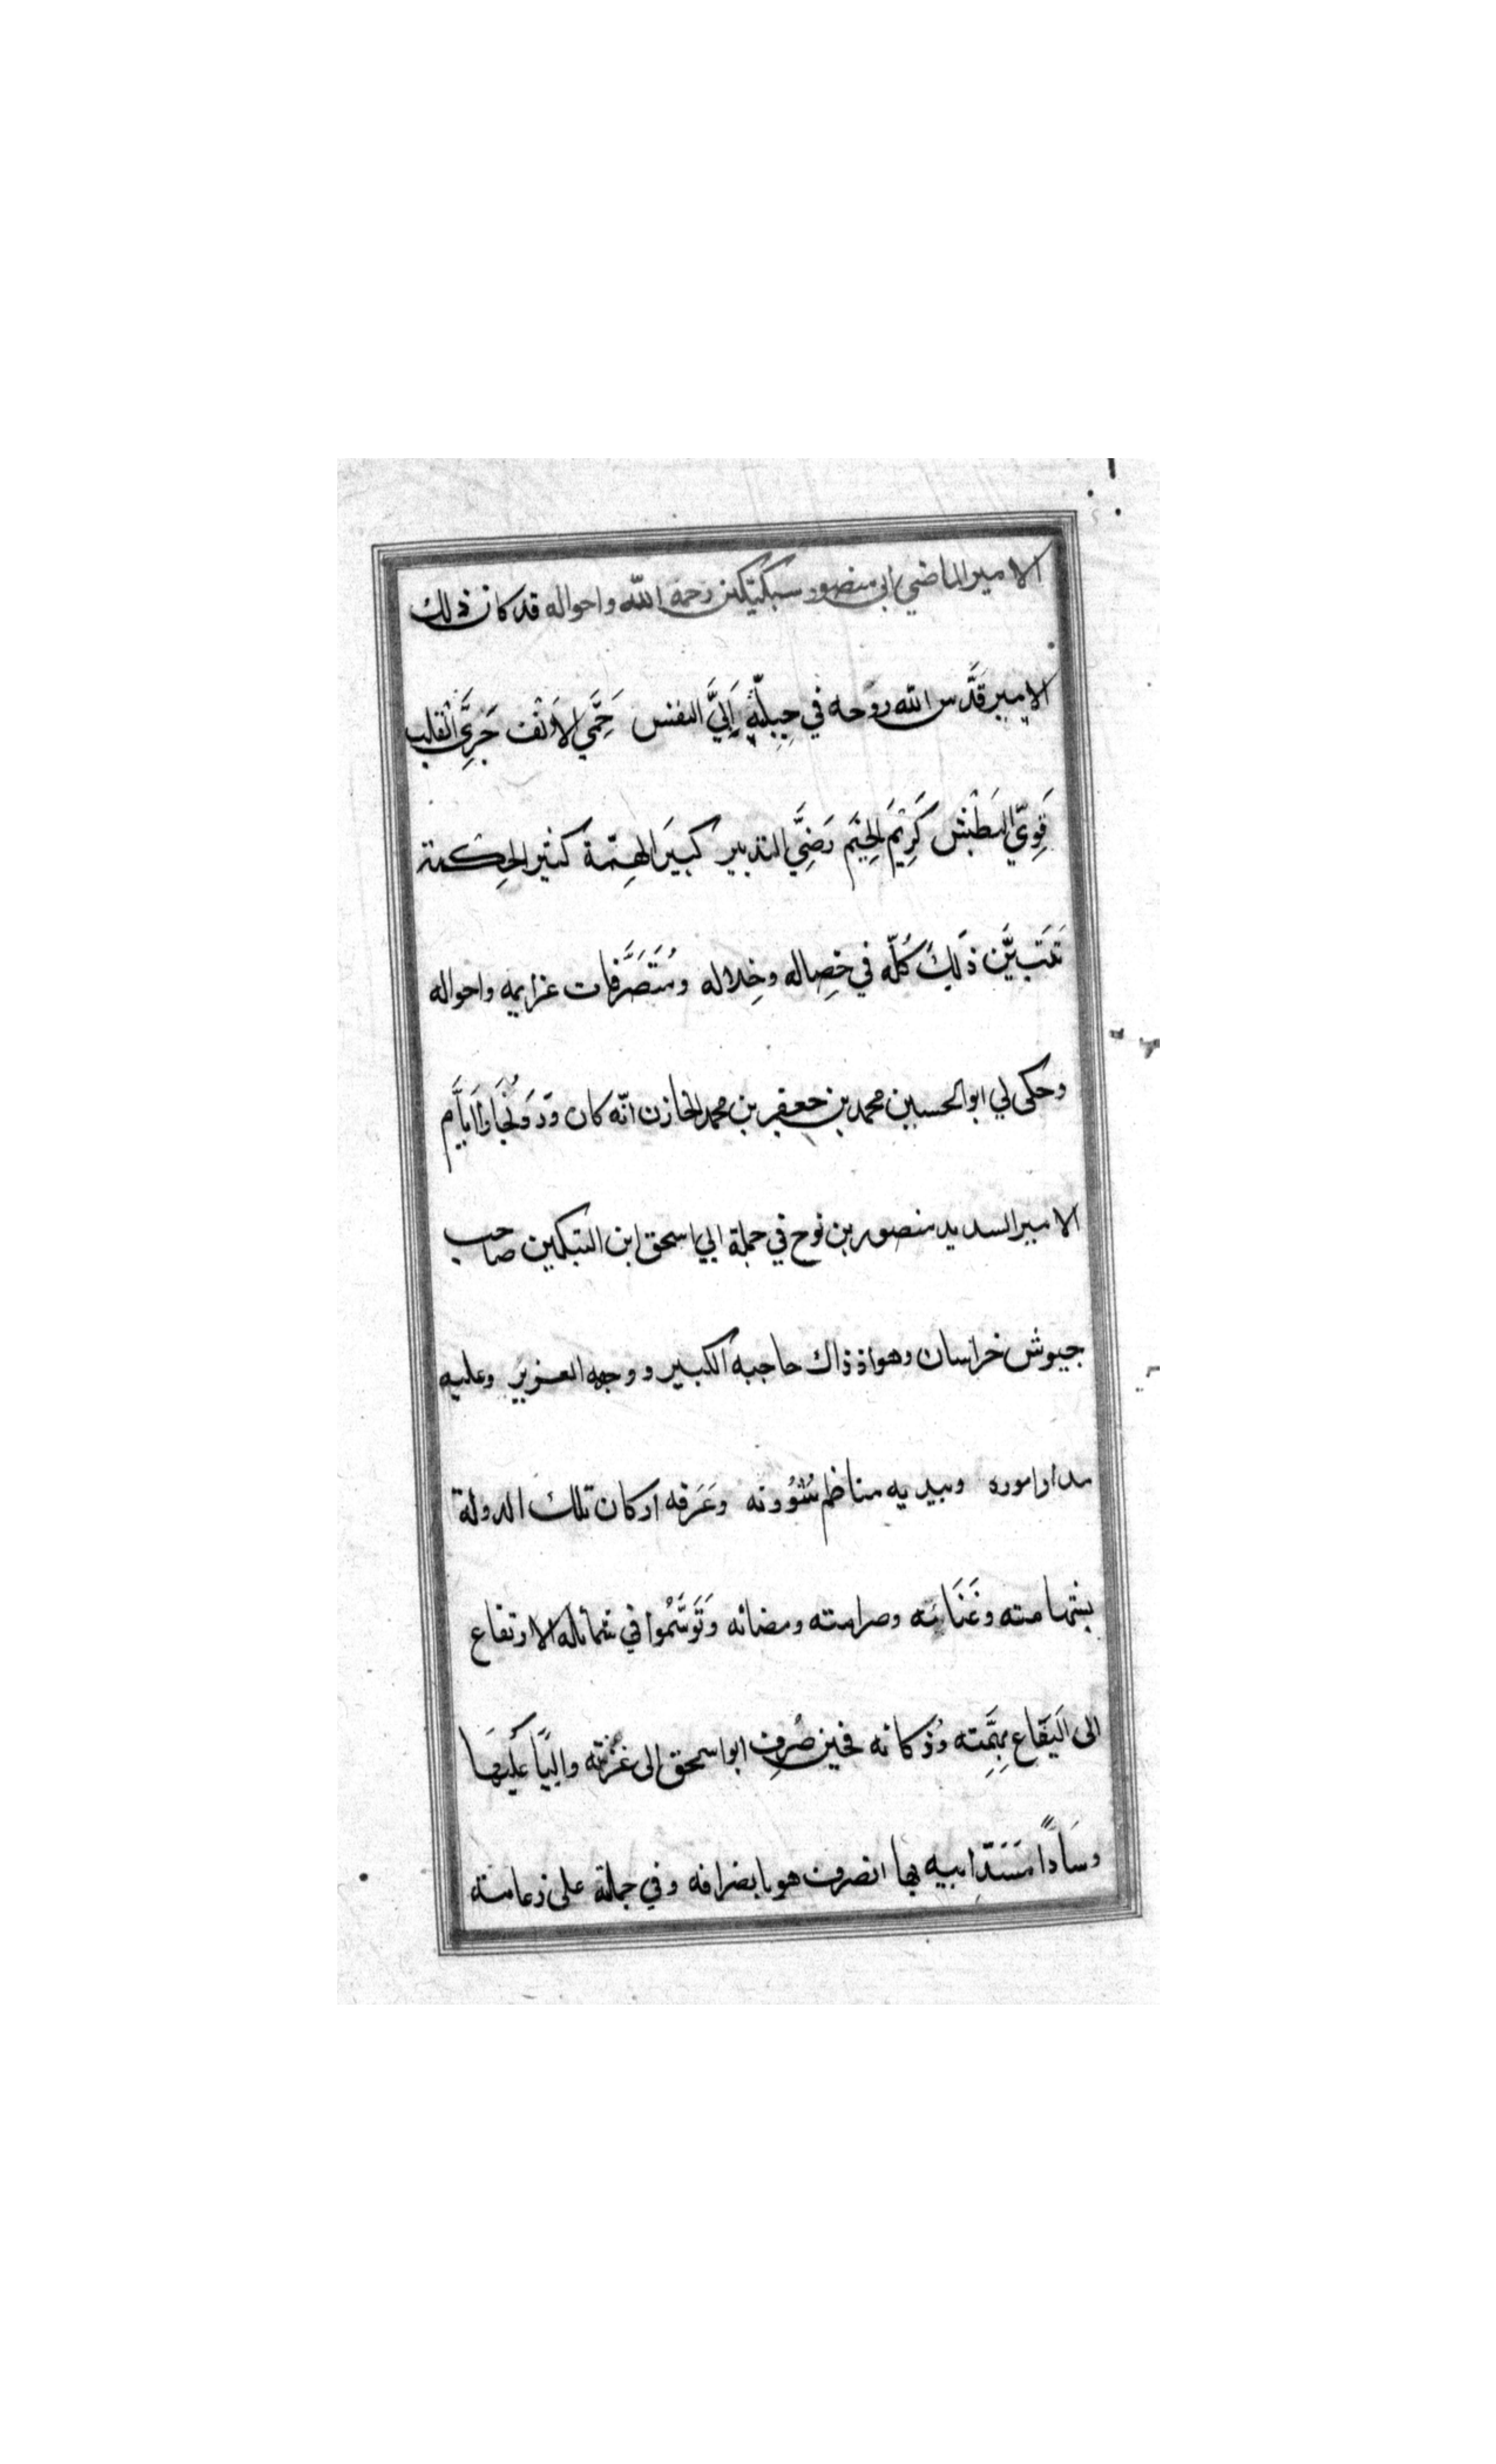 الامير الماضي ابي منصور سبكتكين رحمه الله واحواله قد كان ذلك
الامير قَدَّس الله روحه في جِبِلَّتِهِ اَبِيَّ النفس حَمِّي الاَنْف جَرِيَّ القلب
قَوِيّ البَطْش كَرِيْمَ الخِيَم رَضِيَّ التدبير كبيرَ الهِمّة كثير الحِكمة
تَتَبيَّن ذَلِكَ كُلّه في خِصاله وخِلاله ومُتَصَرَّفات عزايمه واحواله
وحكى لي ابو الحسين محمد بن جعفر بن محمد الخازن انّه كان وَرَدَ بُخَارَا اَيَّام
الامير السديد منصور بن نوح في جملة ابي اسحق ابن التبكين صاحب
جيوش خراسان وهو اذ ذاك حاجبه الكبير ووجهه العزيز وعليه
مدار اموره وبيديه مناظم شؤونه وعَرَفه اركان تلك الدولة
بشهامته وغَنَائه وصرامته ومضائه وَتَوَسَّمُوا في شمائله الارتفاع
الى اليَفَاع بهِمَّته وذكائه فحين صُرِف ابو اسحق الى غزنته واليًا عَلَيهَا
وسَادًا مَسَدَّ ابيه بها انصرف هو بانصرافه وفي جملة على زعامته